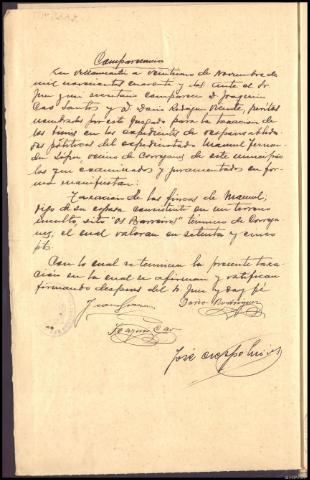 Comparecencia
En Villamartin a veintiuno de Noviembre de
mil novecientos cuarenta y dos ante el Sr
Juez y su secretario comparecen D. Joaquin
Cao Santos y D. Dario Rodriguez Vicente, peritos
nombrados por este Juzgado para la tasacion de
los bienes en los expedientes de responsabilida
des politicas del expedientado Manuel Fernan
dez Lopez, vecino de Correjanes de este municipio
los que examinados y juramentados en for
ma manifiestan:
Tasacion de las fincas de Manuel;
digo de su esposa consistente en un terreno
inculto, sito "Os Barreiros" termino de Correja
nes, el cual valoran en setenta y cinco
pts.
Con lo cual se termina la presente tasa
cion en la cual se afirman y ratifican
firmando despues del Sr Juez y doy fé
Dario Rodriguez
Joaquin Cao
José Crespo